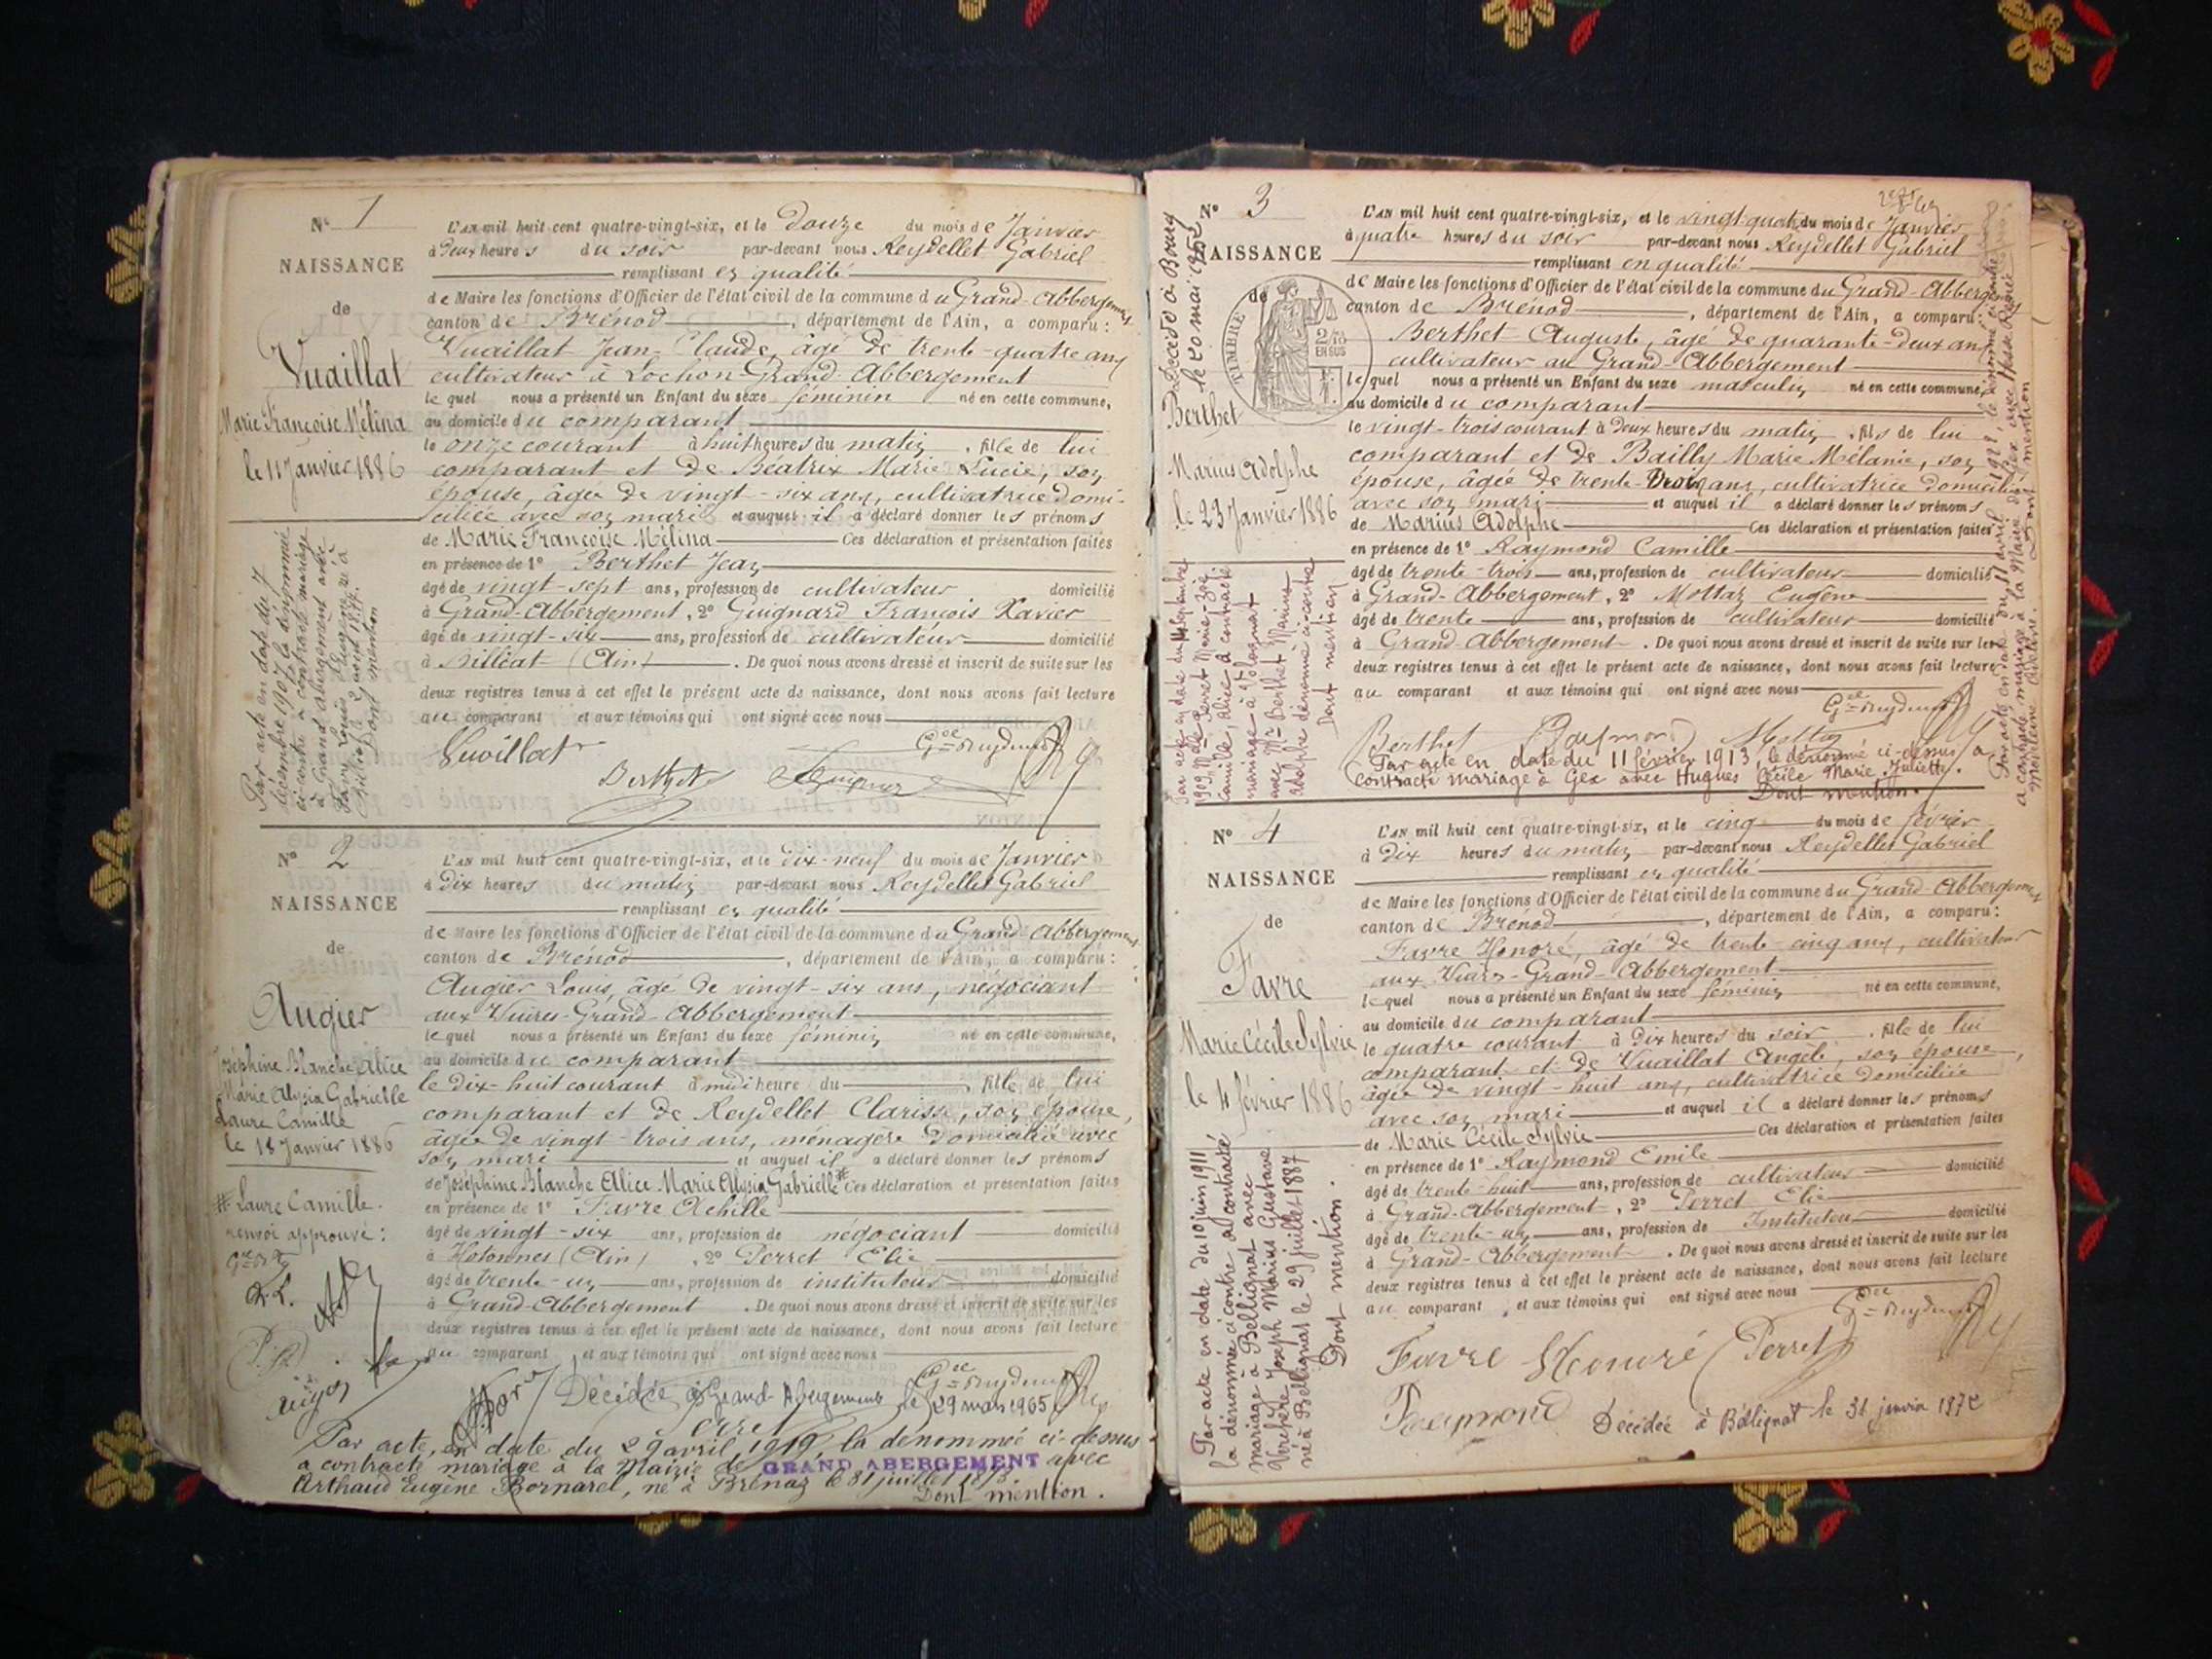 N° 1
NAISSANCE
de
Vuaillat
Marie Françoise Mélina
le 11 Janvier 1886
L'AN mil huit cent quatre-vingt-six, et le douze du mois de Janvier
à Deux heures du soir par-devant nous Reydellet Gabriel
remplissant en qualité
de Maire les fonctions d'Officier de l'état civil de la commune du Grand-Abbergement
canton de Brénod, département de l'Ain, a comparu:
Vuaillat Jean-Claude, âgé de trente-quatre ans
cultivateur à Lochon-Grand-Abbergement
lequel nous a présenté un Enfant du sexe féminin né en cette commune,
au domicile du comparant
le onze courant à huit heures du matin, fille de lui
comparant et de Béatrix Marie Lucie, son
épouse, âgée de vingt-six ans, cultivatrice domi-
ciliée avec son mari et auquel il a déclaré donner les prénoms
de Marie Françoise Mélina Ces déclaration et présentation faites
en présence de 1° Berthet Jean
âgé de vingt-sept ans, profession de cultivateur domicilié
à Grand-Abbergement, 2° Guignard François Xavier
âgé de vingt-six ans, profession de cultivateur domicilié
à Billiat (Ain). De quoi nous avons dressé et inscrit de suite sur les
deux registres tenus à cet effet le présent acte de naissance, dont nous avons fait lecture
au comparant et aux témoins qui ont signé avec nous
Vuvillat
Berthet
Par acte en date du 7
décembre 1907 la dénommée
ci-contre a contracté mariage
à Grand Abergement avec
Favre Louis Eugène né à
Dont mention
N° 2
NAISSANCE
de
Augier
Joséphine Blanche Alice
Marie Alysia Gabrielle
Laure Camille
le 18 Janvier 1886
# Laure Camille.
renvoi approuvé:
L'AN mil huit cent quatre-vingt-six, et le dix-neuf du mois de Janvier
à Dix heures du matin par-devant nous Reydellet Gabriel
remplissant en qualité
de Maire les fonctions d'Officier de l'état civil de la commune du Grand-Abbergement
canton de Brénod, département de l'Ain, a comparu:
Augier Louis, âgé de vingt-six ans, négociant
aux Vuires-Grand-Abbergement
lequel nous a présenté un Enfant du sexe féminin né en cette commune,
au domicile du comparant
le dix-huit courant à midi heure du, fille de lui
comparant et de Reydellet Clarisse, son épouse,
âgée de vingt-trois ans, ménagère domiciliée avec
son mari et auquel il a déclaré donner les prénoms
de Joséphine Blanche Alice Marie Alysia Gabrielle # Ces déclaration et présentation faites
en présence de 1° Favre Achille
âgé de vingt-six ans, profession de négociant domicilié
à Hotonnes (Ain), 2° Perret Elie
âgé de trente-un ans, profession de instituteur domicilié
à Grand-Abbergement. De quoi nous avons dressé et inscrit de suite sur les
deux registres tenus à cet effet le présent acte de naissance, dont nous avons fait lecture
au comparant et aux témoins qui ont signé avec nous
Décédée à Grand Abergement le 29 mars 1965
Par acte, en date du 29 avril 1919, la dénommée ci-dessus
a contracté mariage à la Mairie de GRAND ABERGEMENT avec
Arthaud Eugène Bornarel, né à Brénaz le 31 juillet 1873.
Dont mention.
N° 3
NAISSANCE
de
Berthet
Marius Adolphe
le 23 Janvier 1886
Décédé à Bourg
le 20 mai
TIMBRE
2/10
EN SUS
L'AN mil huit cent quatre-vingt-six, et le vingt-quatre du mois de Janvier
à quatre heures du soir par-devant nous Reydellet Gabriel
remplissant en qualité
de Maire les fonctions d'Officier de l'état civil de la commune du Grand-Abbergement
canton de Brénod, département de l'Ain, a comparu:
Berthet Auguste, âgé de quarante-deux ans
cultivateur au Grand-Abbergement
lequel nous a présenté un Enfant du sexe masculin né en cette commune,
au domicile du comparant
le vingt-trois courant à Deux heures du matin, fils de lui
comparant et de Bailly Marie Mélanie, son
épouse, âgée de trente-trois ans, cultivatrice domiciliée
avec son mari et auquel il a déclaré donner les prénoms
de Marius Adolphe Ces déclaration et présentation faites
en présence de 1° Raymond Camille
âgé de trente-trois ans, profession de cultivateur domicilié
à Grand-Abbergement, 2° Mottaz Eugène
âgé de trente ans, profession de cultivateur domicilié
à Grand-Abbergement. De quoi nous avons dressé et inscrit de suite sur les
deux registres tenus à cet effet le présent acte de naissance, dont nous avons fait lecture
au comparant et aux témoins qui ont signé avec nous
Berthet Raymond Mottaz
Par acte en date du 11 février 1913, le dénommé ci-dessus a
contracté mariage à Gex avec Hugues Cécile Marie Juliette.
Dont mention.
Par acte en date du septembre
1909 Perret Marie-
Camille, Alice a contracté
mariage à Volognat
avec Mr Berthet Marius
Adolphe dénommé ci-contre
Dont mention
Par acte en date du 17 avril 1922, le dénommé ci-contre
a contracté mariage à la Mairie de Gex avec
Dont mention
N° 4
NAISSANCE
de
Favre
Marie Cécile Sylvie
le 4 février 1886
L'AN mil huit cent quatre-vingt-six, et le cinq du mois de février
à Dix heures du matin par-devant nous Reydellet Gabriel
remplissant en qualité
de Maire les fonctions d'Officier de l'état civil de la commune du Grand-Abbergement
canton de Brénod, département de l'Ain, a comparu:
Favre Honoré, âgé de trente-cinq ans, cultivateur
aux Vuires-Grand-Abbergement
lequel nous a présenté un Enfant du sexe féminin né en cette commune,
au domicile du comparant
le quatre courant à Dix heures du soir, fille de lui
comparant et de Vuaillat Angèle, son épouse,
âgée de vingt-huit ans, cultivatrice domiciliée
avec son mari et auquel il a déclaré donner les prénoms
de Marie Cécile Sylvie Ces déclaration et présentation faites
en présence de 1° Raymond Emile
âgé de trente-huit ans, profession de cultivateur domicilié
à Grand-Abbergement, 2° Perret Elie
âgé de trente-un ans, profession de Instituteur domicilié
à Grand-Abbergement. De quoi nous avons dressé et inscrit de suite sur les
deux registres tenus à cet effet le présent acte de naissance, dont nous avons fait lecture
au comparant, et aux témoins qui ont signé avec nous
Favre Honoré Perret
Raymond Décédée à Bellignat le 31 janvier
Par acte en date du 10 juin 1911
la dénommée ci-contre a contracté
mariage à Bellignat avec
Joseph Marius Gustave
né à Bellignat le 29 juillet 1887
Dont mention.